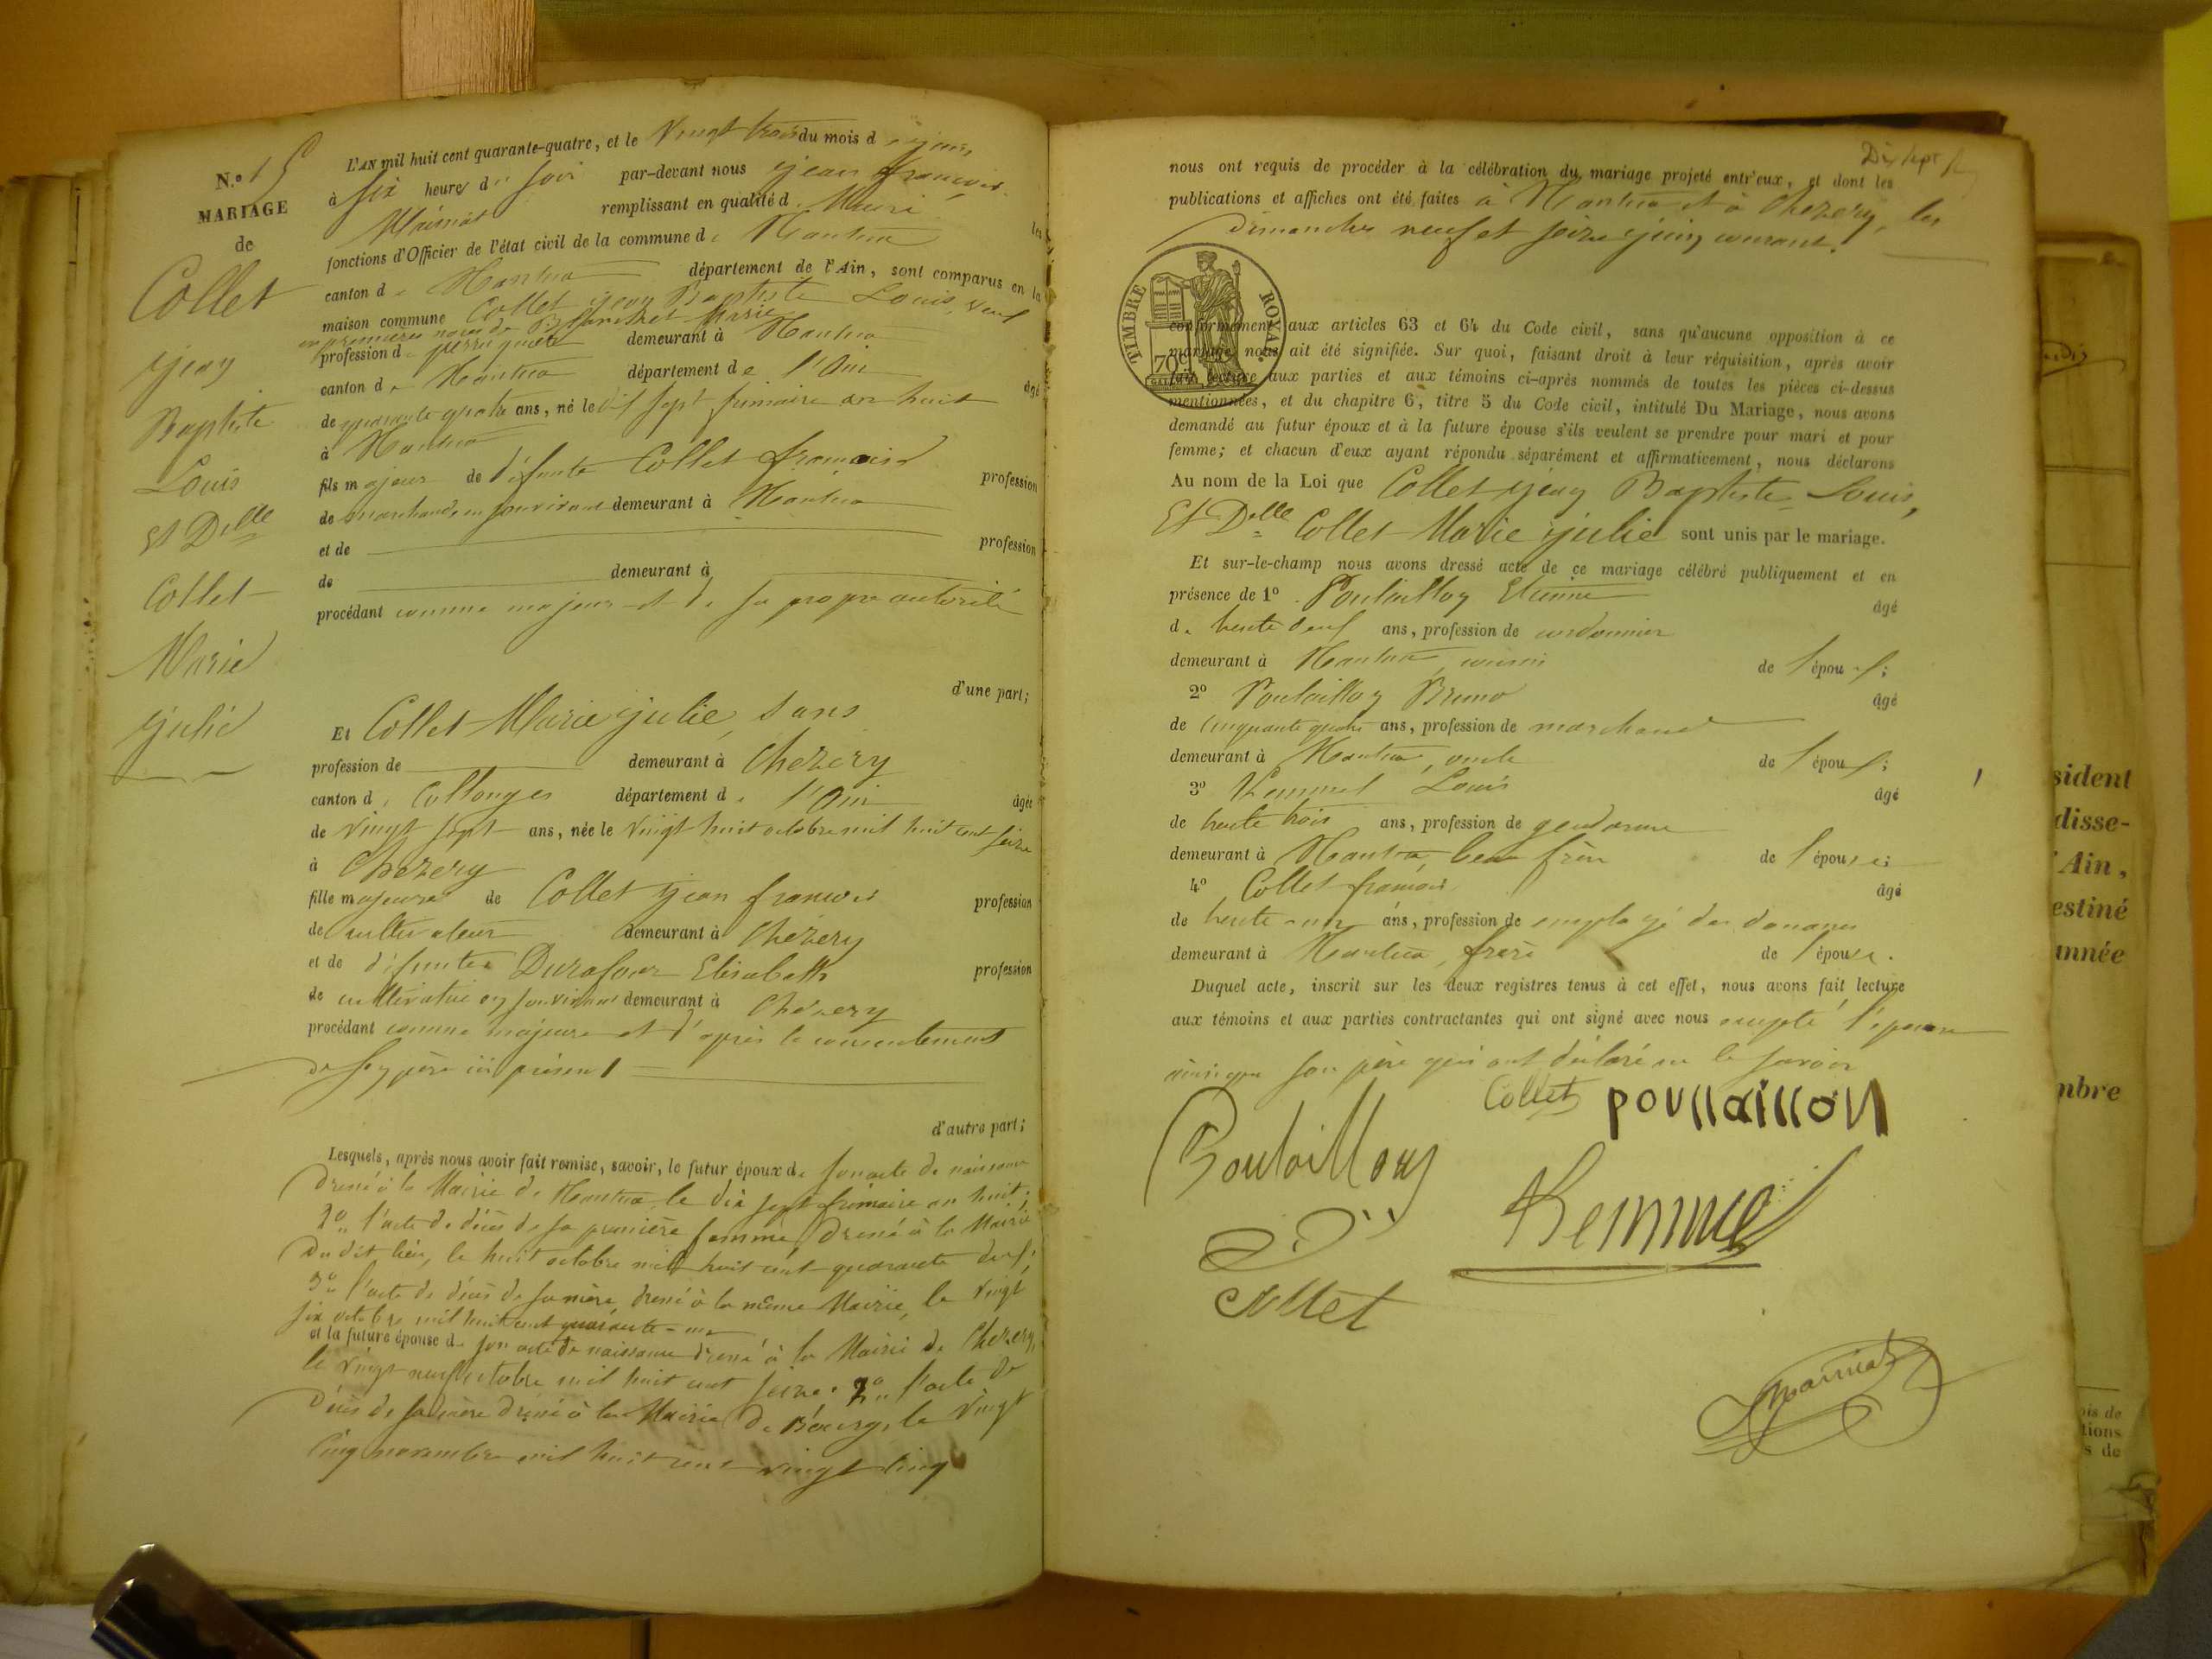 N.º 15
MARIAGE
de
Collet
jean
Baptiste
Louis
Et Delle
Collet
Marie
julie
L'AN mil huit cent quarante-quatre, et le Vingt trois du mois de juin,
à six heures du soir par-devant nous jean françois
Mairiat remplissant en qualité de Maire les
fonctions d'Officier de l'état civil de la commune de Nantua
canton de Nantua département de l'Ain, sont comparus en la
maison commune Collet jean Baptiste Louis, veuf
en premières noces de Marie
profession de perruquier demeurant à Nantua
canton de Nantua département de l'Ain âgé
de quarante quatre ans, né le dix sept frimaire an huit
à Nantua
fils majeur de défunte Collet françoise profession
de marchande, en son vivant demeurant à Nantua
et de profession
de demeurant à
procédant comme majeur et de sa propre autorité
d'une part;
Et Collet Marie julie, sans
profession de demeurant à Chézery
canton de Collonges département de l'Ain âgée
de vingt sept ans, née le vingt huit octobre mil huit cent seize
à Chézery
fille majeure de Collet jean françois profession
de cultivateur demeurant à Chézery
et de défunte Durafour Elisabeth profession
de cultivatrice en son vivant demeurant à Chézery
procédant comme majeure et d'après le consentement
de son père ici présent
d'autre part;
Lesquels, après nous avoir fait remise, savoir, le futur époux de son acte de naissance
dressé à la Mairie de Nantua le dix sept frimaire an huit;
2º l'acte de décès de sa première femme, dressé à la Mairie
du dit lieu, le huit octobre mil huit cent quarante deux;
3º l'acte de décès de sa mère, dressé à la même Mairie, le vingt
six octobre mil huit cent quarante-un
et la future épouse de son acte de naissance dressé à la Mairie de Chézery,
le vingt neuf octobre mil huit cent seize. 2º l'acte de
décès de sa mère dressé à la Mairie de Bourg, le vingt
cinq novembre mil huit cent vingt cinq
Dix sept
nous ont requis de procéder à la célébration du mariage projeté entr'eux, et dont les
publications et affiches ont été faites à Nantua et à Chézery, les
dimanches neuf et seize juin courant.
TIMBRE ROYAL.
conformément aux articles 63 et 64 du Code civil, sans qu'aucune opposition à ce
mariage nous ait été signifiée. Sur quoi, faisant droit à leur réquisition, après avoir
fait lecture aux parties et aux témoins ci-après nommés de toutes les pièces ci-dessus
mentionnées, et du chapitre 6, titre 5 du Code civil, intitulé Du Mariage, nous avons
demandé au futur époux et à la future épouse s'ils veulent se prendre pour mari et pour
femme; et chacun d'eux ayant répondu séparément et affirmativement, nous déclarons
Au nom de la Loi que Collet jean Baptiste Louis,
Et Delle Collet Marie julie sont unis par le mariage.
Et sur-le-champ nous avons dressé acte de ce mariage célébré publiquement et en
présence de 1º Poulaillon Etienne âgé
de trente deux ans, profession de cordonnier
demeurant à Nantua, cousin de l'époux;
2º Poulaillon Bruno âgé
de cinquante quatre ans, profession de marchand
demeurant à Nantua, oncle de l'époux;
3º Kemmel Louis âgé
de trente trois ans, profession de gendarme
demeurant à Nantua, beau frère de l'épouse;
4º Collet françois âgé
de trente-un ans, profession de employé des douanes
demeurant à Nantua, frère de l'épouse.
Duquel acte, inscrit sur les deux registres tenus à cet effet, nous avons fait lecture
aux témoins et aux parties contractantes qui ont signé avec nous excepté l'épouse
ainsi que son père qui ont déclaré ne le savoir
Collet poullaillon
Poulaillon
Kemmel
Collet
Mairiat
sident
disse-
Ain,
estiné
année
mbre
ois de
tions
s de